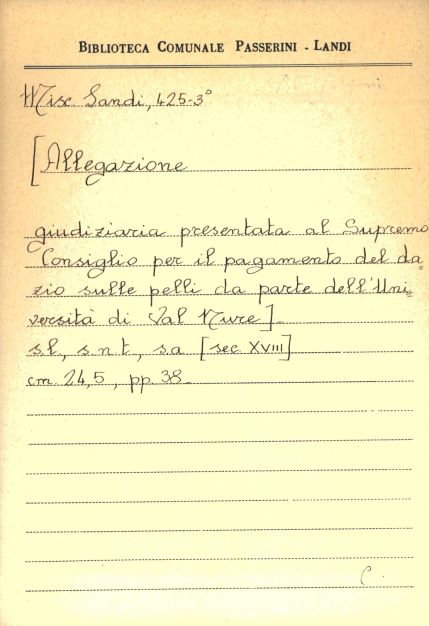 BIBLIOTECA COMUNALE PASSERINI - LANDI
Misc Landi, 425-3°
[Allegazione
giudiziaria presentata al Supremo
Consiglio per il pagamento del da=
zio sulle pelli da parte dell'Uni=
versità di Val Nure]
s.l., s.n.t., s.a [sec XVIII]
cm. 24,5, pp. 38.
C.